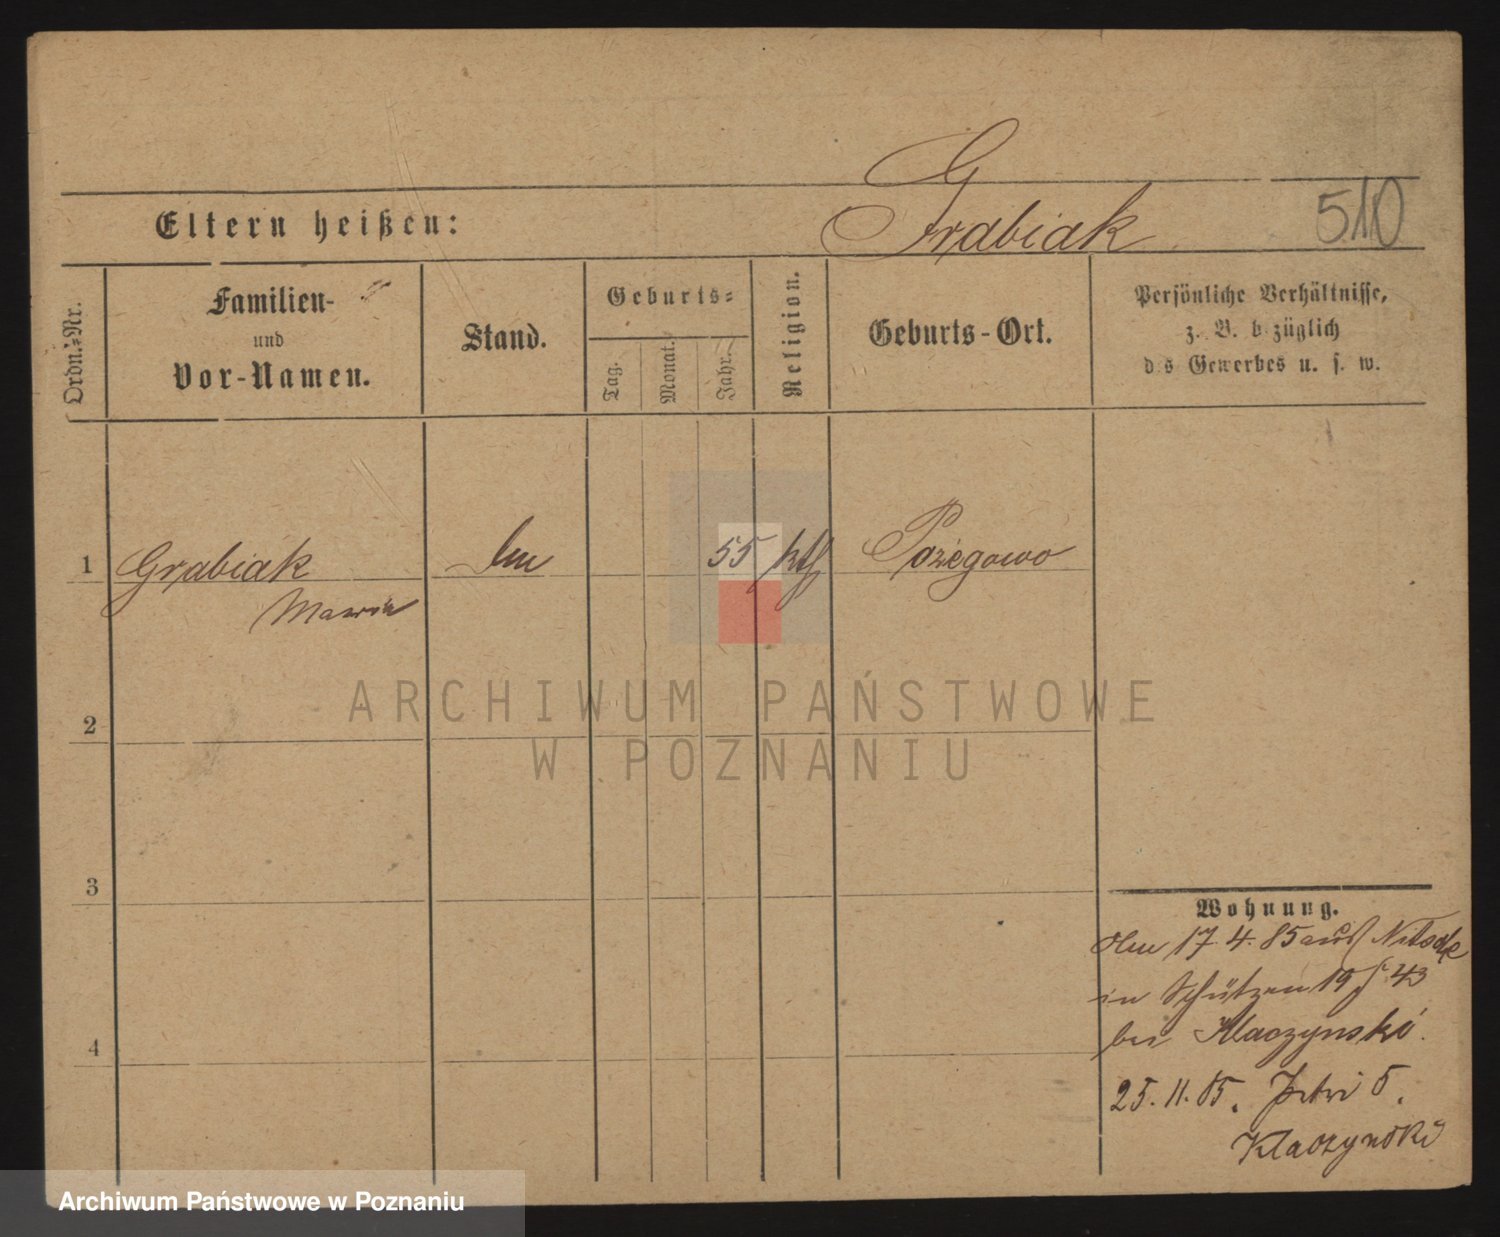 G
Eltern heißen: Grabiak 510
Ordn.-Nr.
Familien-
und
Vor-Namen.
Stand.
Geburts-
Tag.
Monat.
Jahr.
Religion.
Geburts-Ort.
Persönliche Verhältnisse,
z. B. bezüglich
des Gewerbes u. s. w.
1 Grabiak 55 kth Pożegowo
Maria
2
3
4
Wohnung.
17. 4. 85 aus
in Schützen 19 43
bei Klaczynski.
25. 11. 85. Petri 5.
Klaczynski
ARCHIWUM PAŃSTWOWE
W POZNANIU
Archiwum Państwowe w Poznaniu